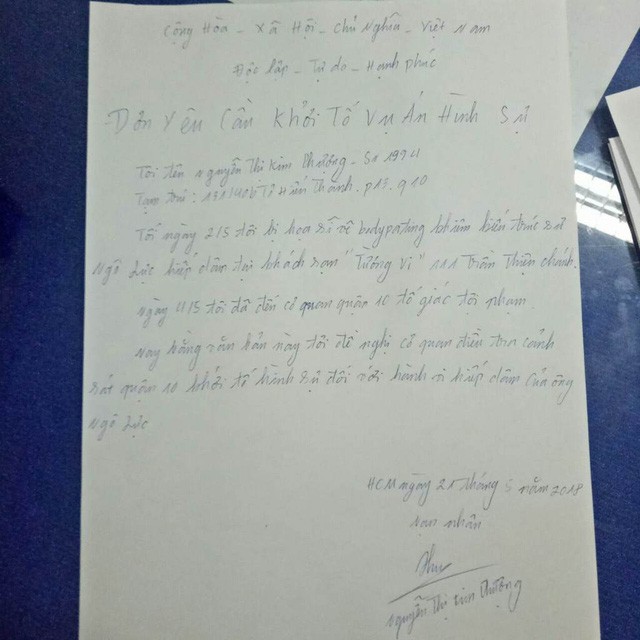 Cộng Hòa - Xã Hội - Chủ Nghĩa - Việt Nam
Độc lập - Tự do - Hạnh phúc
Đơn Yêu Cầu Khởi Tố Vụ Án Hình Sự
Tôi tên Nguyễn Thị Kim Phượng - S1 1994
Tạm trú: Tô Hiến Thành. p13. q10
Tối ngày 2/5 tôi bị họa sĩ vẽ bodypating kiêm kiến trúc sư
Ngô Lực hiếp dâm tại khách sạn "Tường Vi" 111 Trần Thiện Chánh.
ngày 11/5 tôi đã đến cơ quan quận 10 tố giác tội phạm.
nay bằng văn bản này tôi đề nghị cơ quan điều tra cảnh
sát quận 10 khởi tố hình sự đối với hành vi hiếp dâm của ông
Ngô Lực
HCM ngày 21 tháng 5 năm 2018
nạn nhân
Nguyễn Thị Kim Phượng